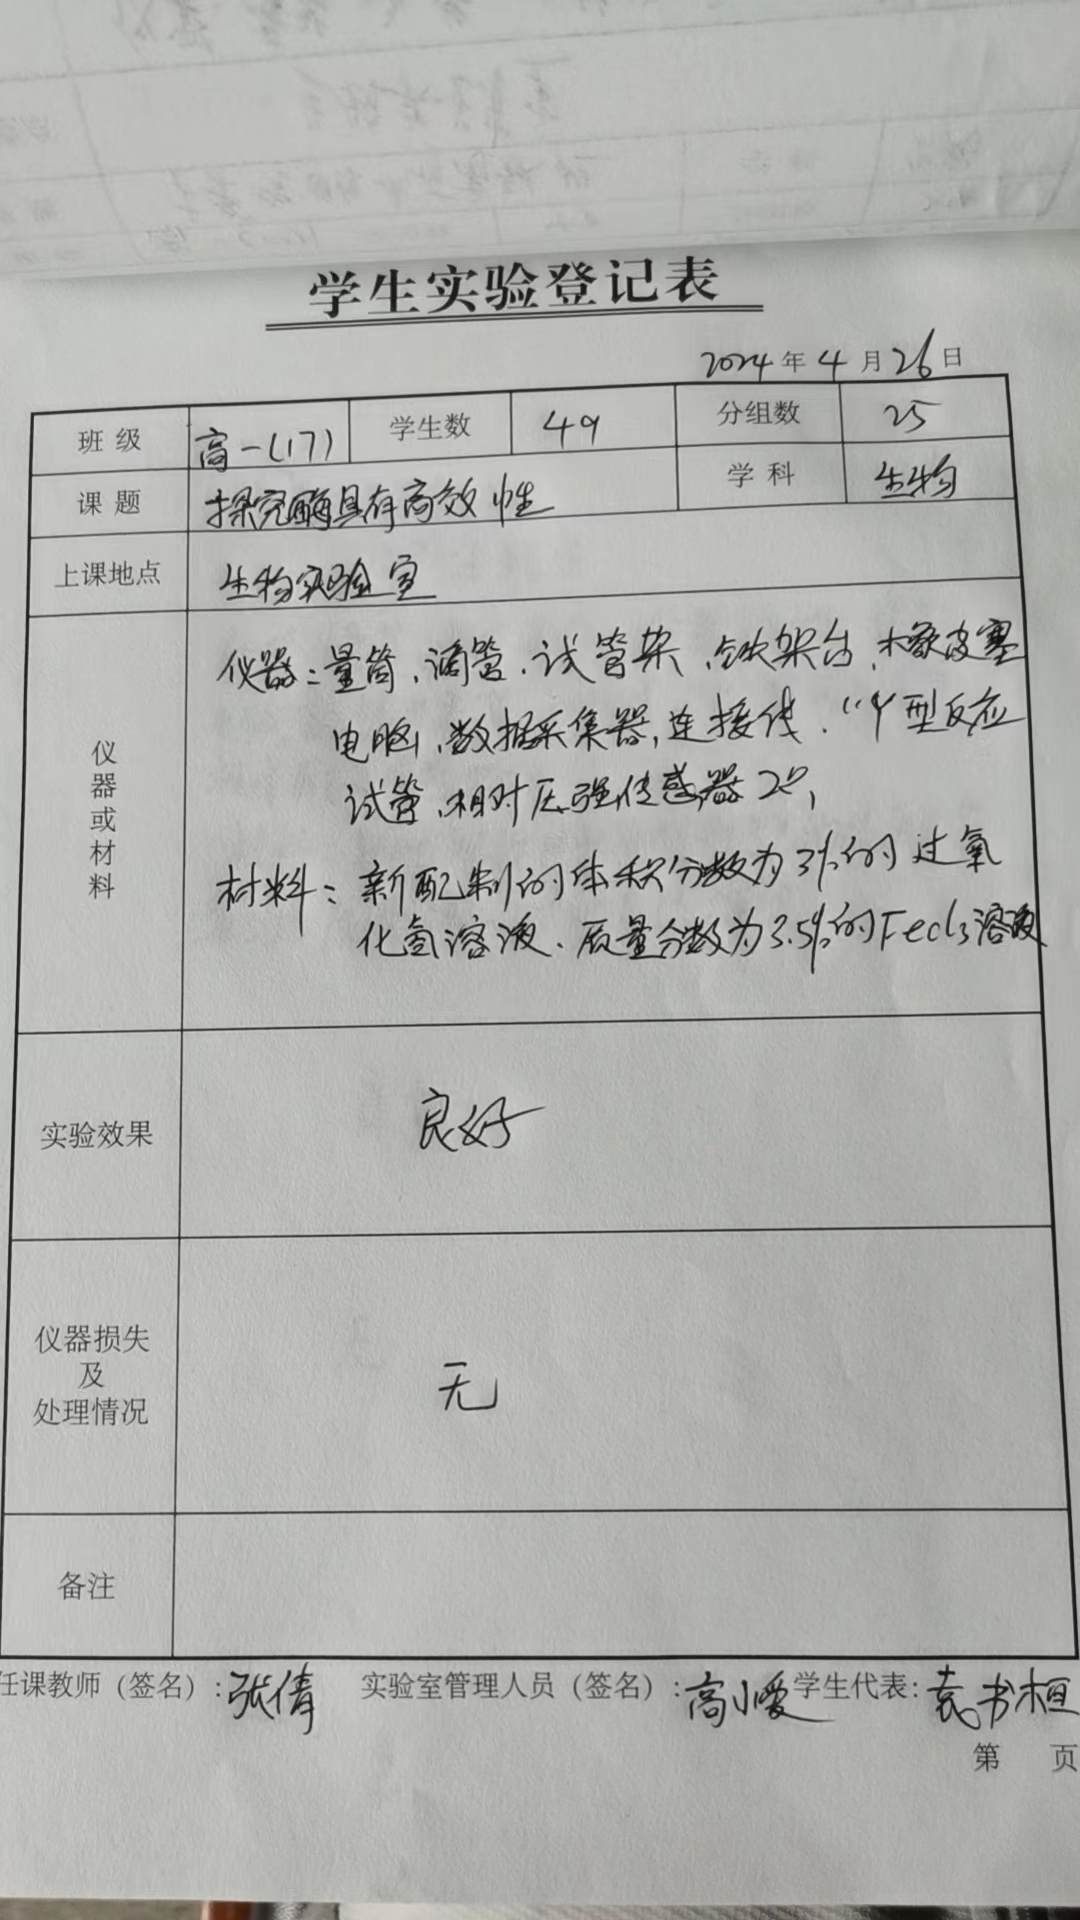 学生实验登记表
2024年4月26日
班级 高一(17) 学生数 49 分组数 25
课题 探究酶具有高效性 学科 生物
上课地点 生物实验室
仪器或材料
仪器：量筒、滴管、试管架、铁架台、橡皮塞
电脑、数据采集器、连接线、“Y”型反应
试管、相对压强传感器2只,
材料：新配制的体积分数为3%的过氧
化氢溶液、质量分数为3.5%的FeCl3溶液
实验效果 良好
仪器损失
及
处理情况
无
备注
任课教师（签名）：张倩 实验室管理人员（签名）：高小爱 学生代表：袁书桓
第 页